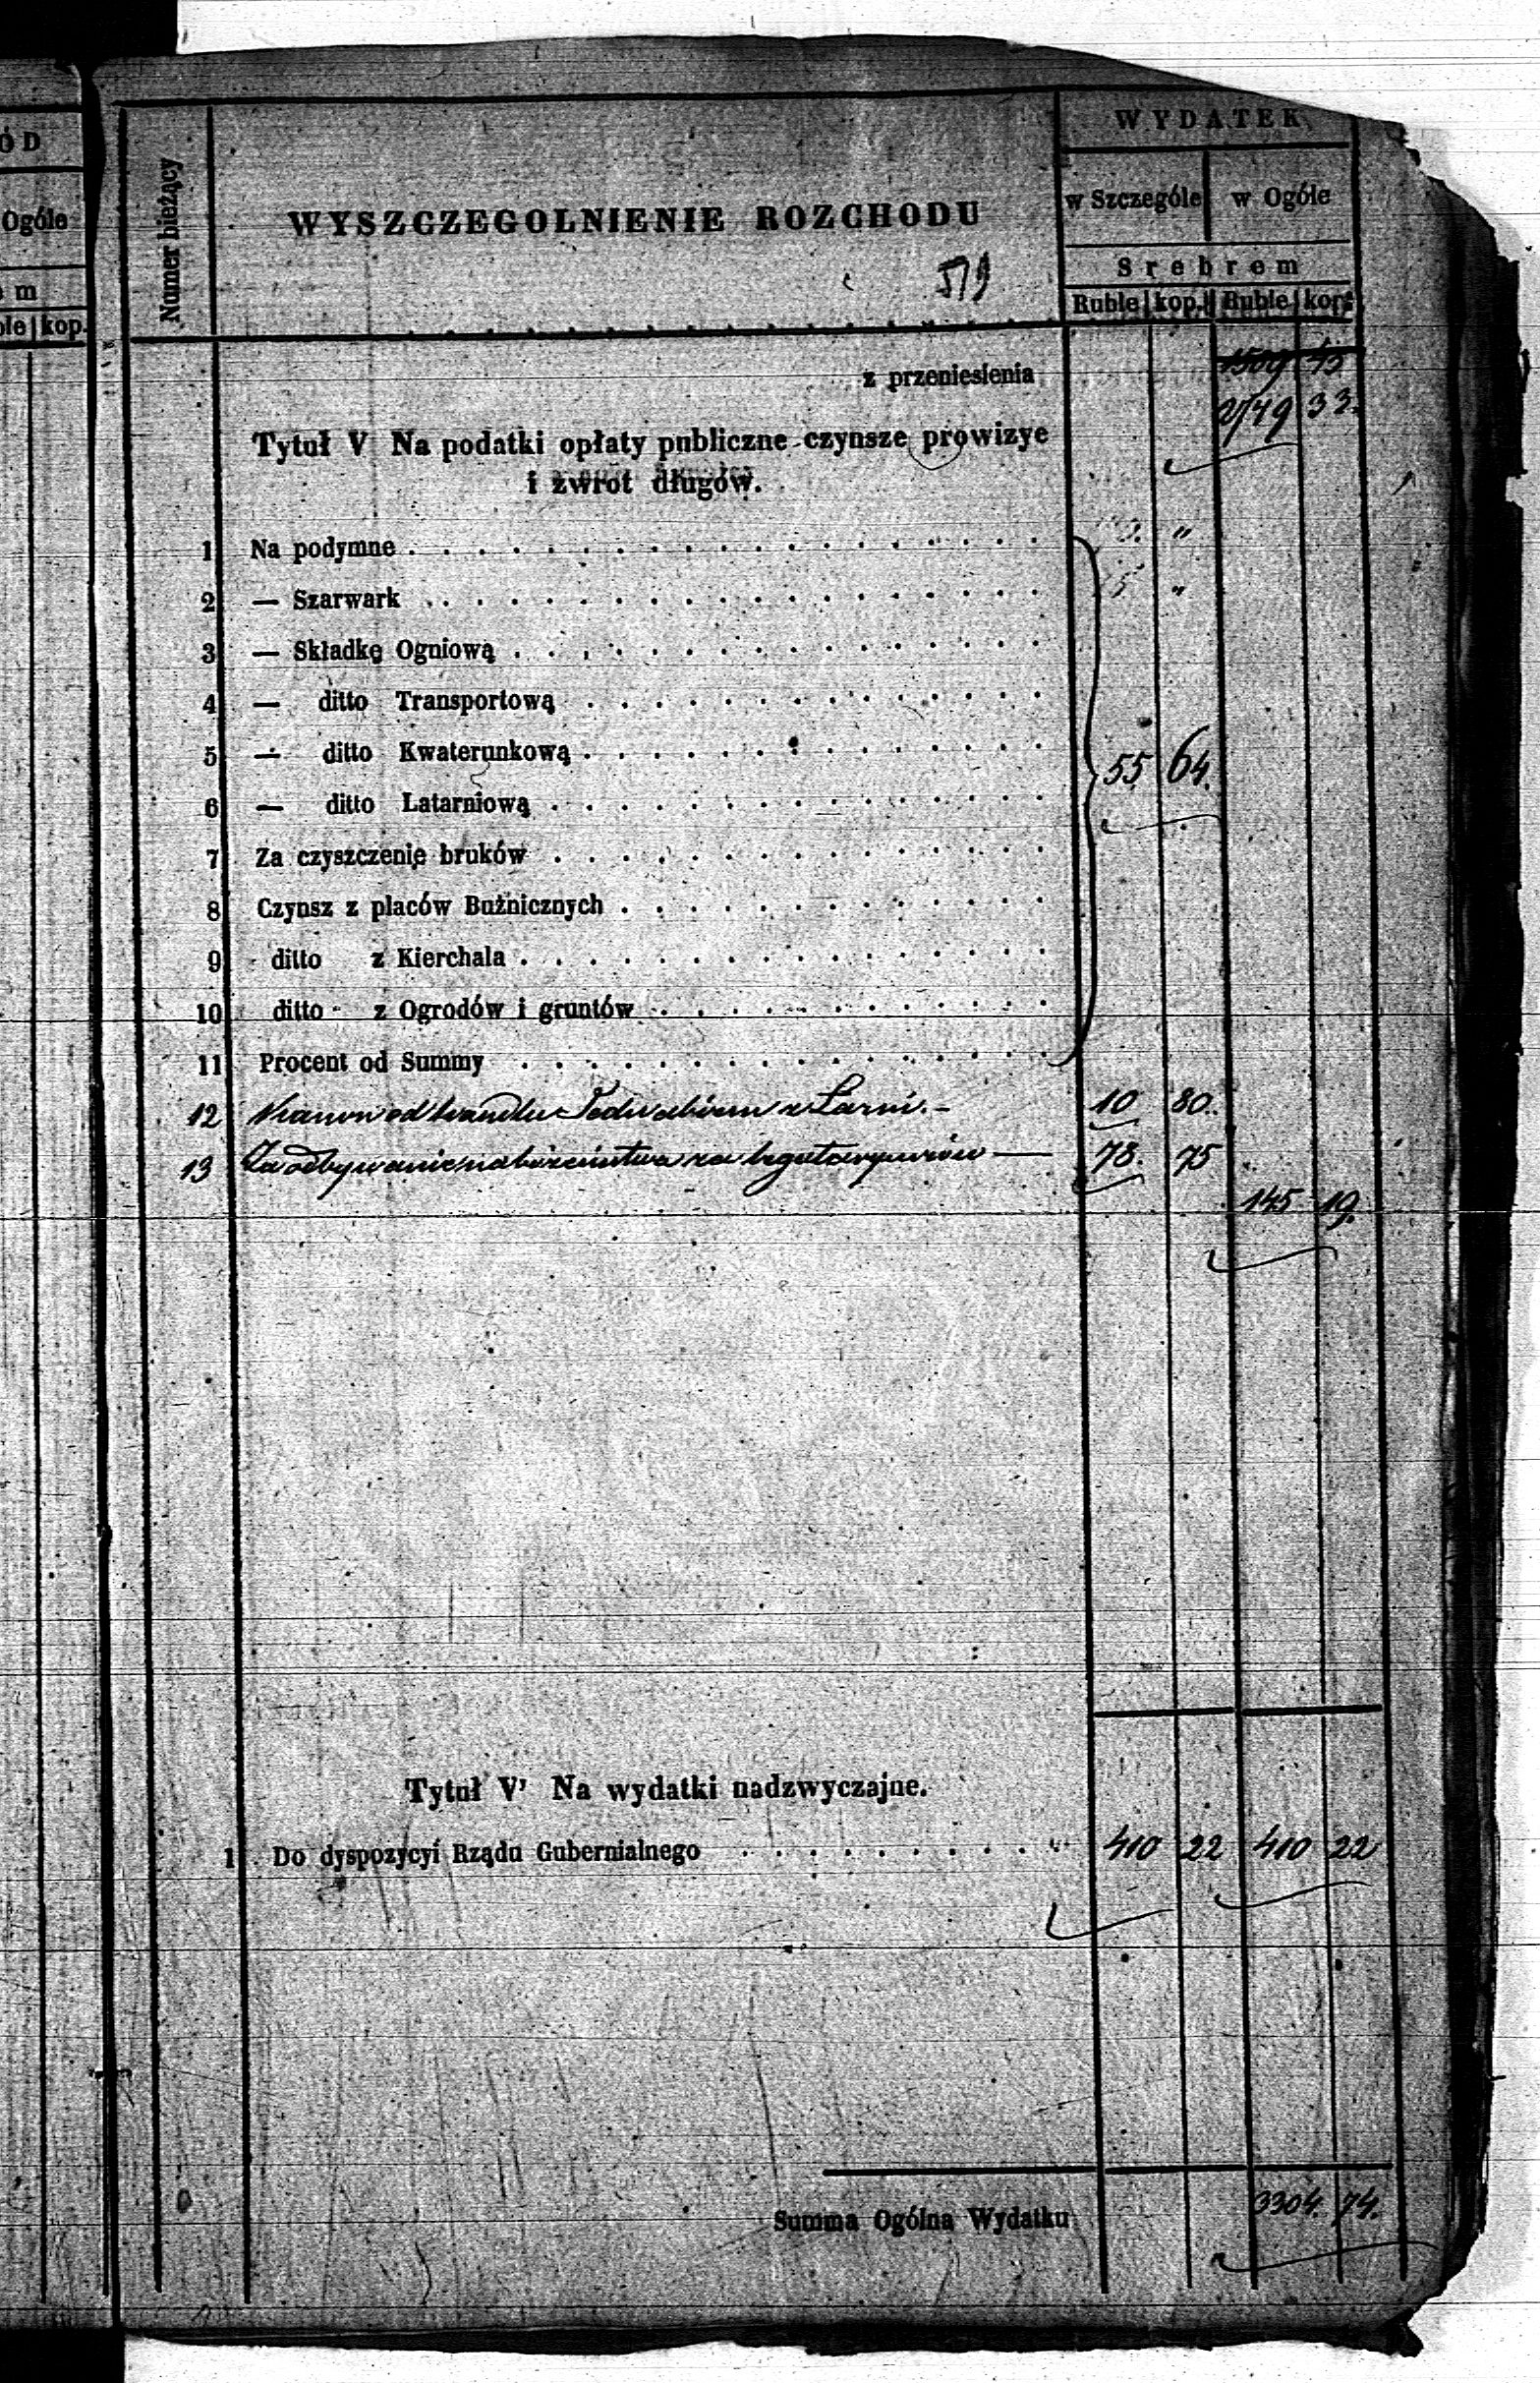 ÓD
Ogóle
m
ble kop.
Numer bieżący
WYSZCZEGOLNIENIE ROZCHODU
WYDATEK
w Szczególe w Ogóle
Srebrem
Ruble kop. Ruble kop.
519
z przeniesienia 1509 43
2749 33.
Tytuł V Na podatki opłaty publiczne czynsze prowizye
i zwrot długów.
1 Na podymne "
2 — Szarwark "
3 — Składkę Ogniową
4 — ditto Transportową
5 — ditto Kwaterunkową 55 64.
6 — ditto Latarniową
7 Za czyszczenie bruków
8 Czynsz z placów Bużnicznych
9 ditto z Kierchala
10 ditto z Ogrodów i gruntów
11 Procent od Summy
12 Kanon od handlu 10 80.
13 Za odbywanie nabożeństwa za 78. 75
145 19.
Tytuł V' Na wydatki nadzwyczajne.
1 Do dyspozycyi Rządu Gubernialnego 410 22 410 22
Summa Ogólna Wydatku 3304. 74.